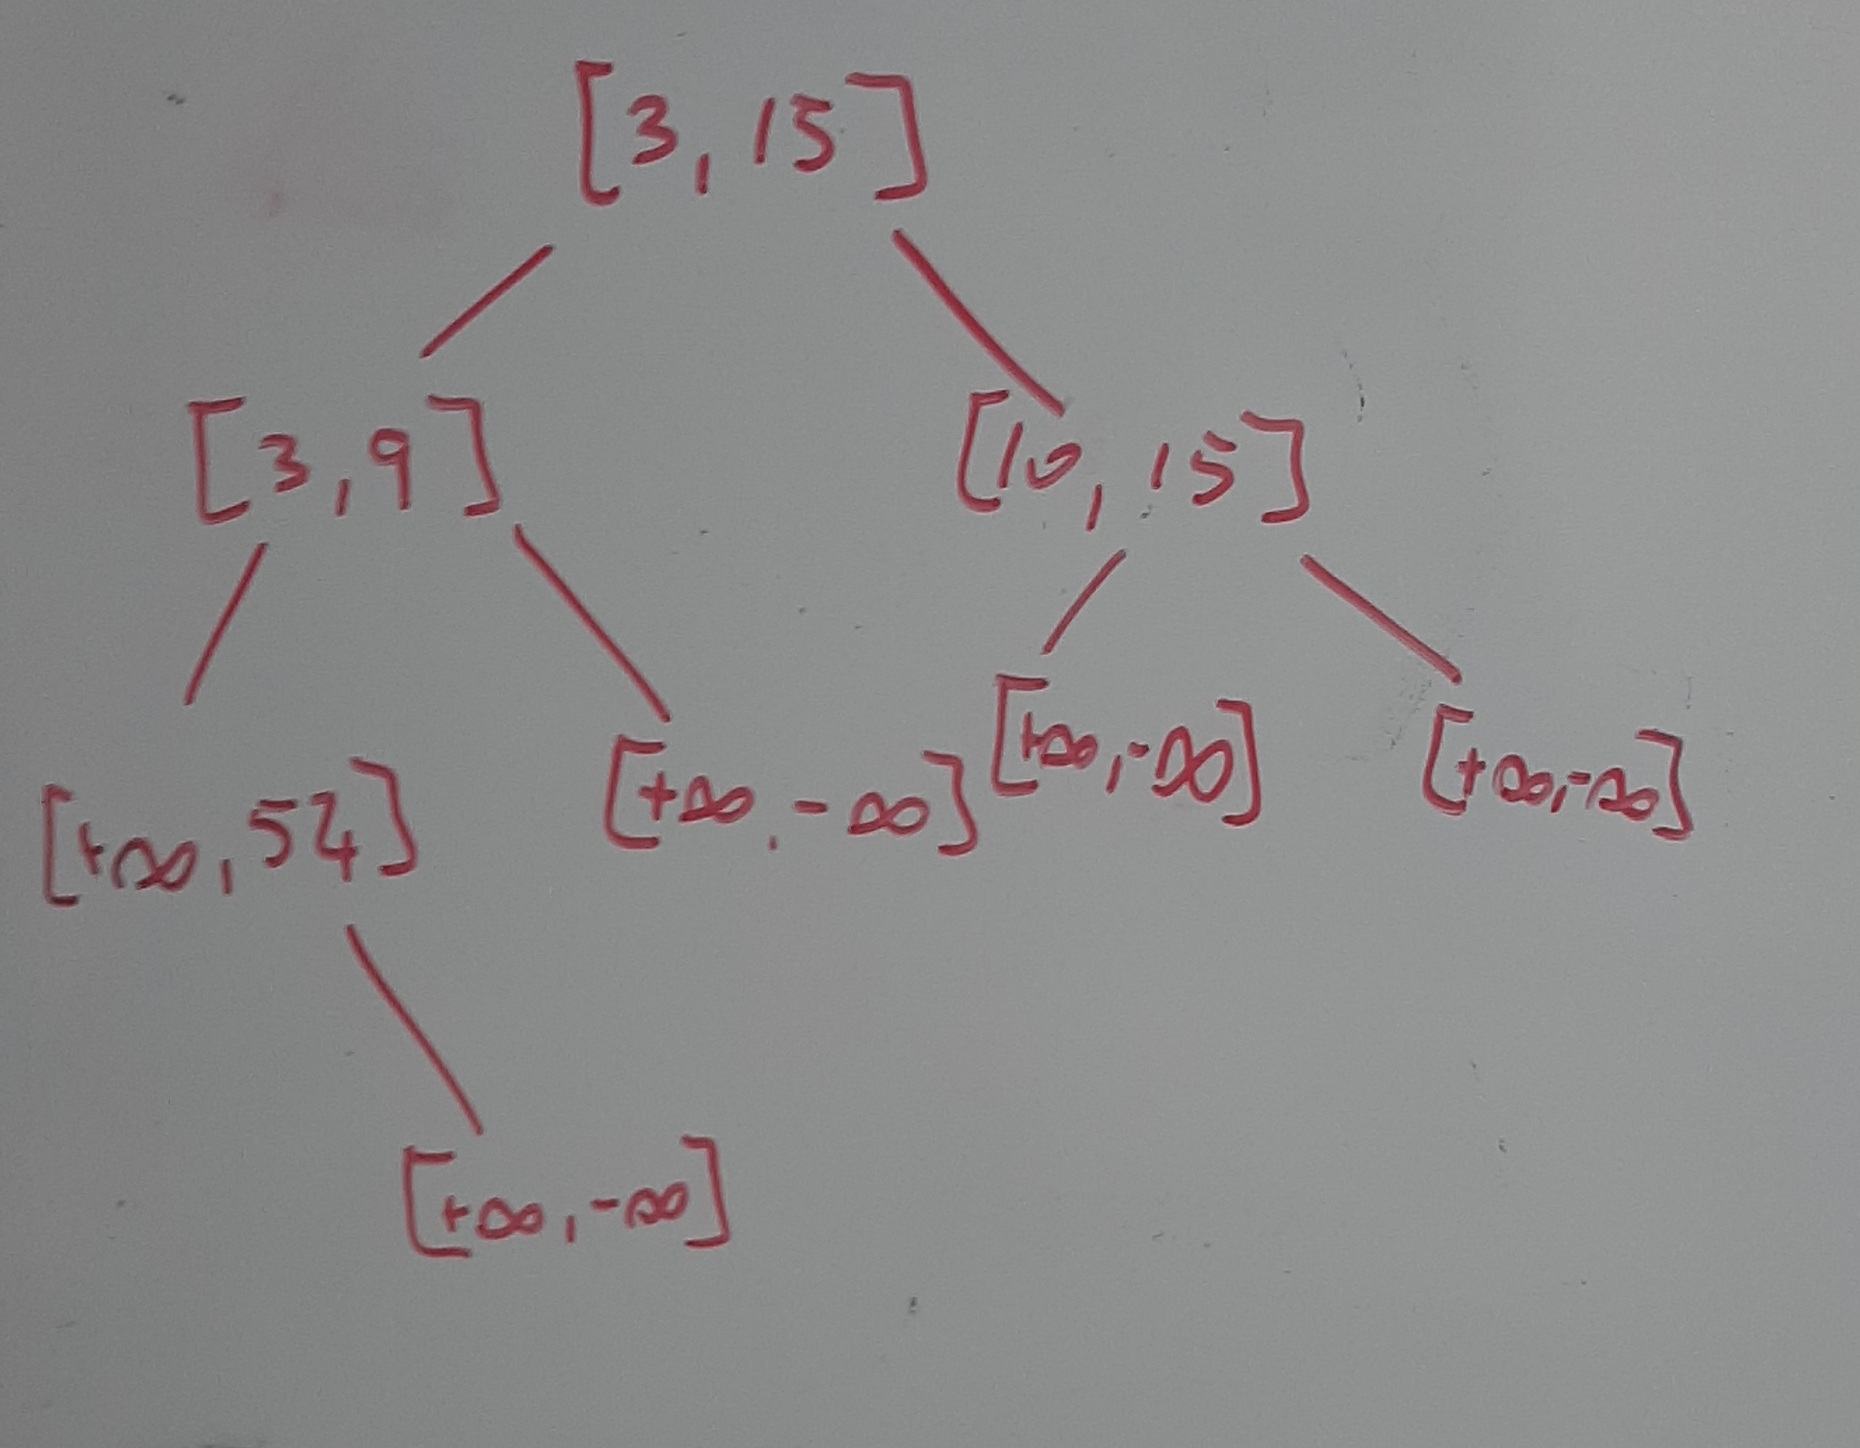 [3, 15]
[3, 9] [10, 15]
[+∞, 54] [+∞, -∞] [+∞, -∞] [+∞, -∞]
[+∞, -∞]